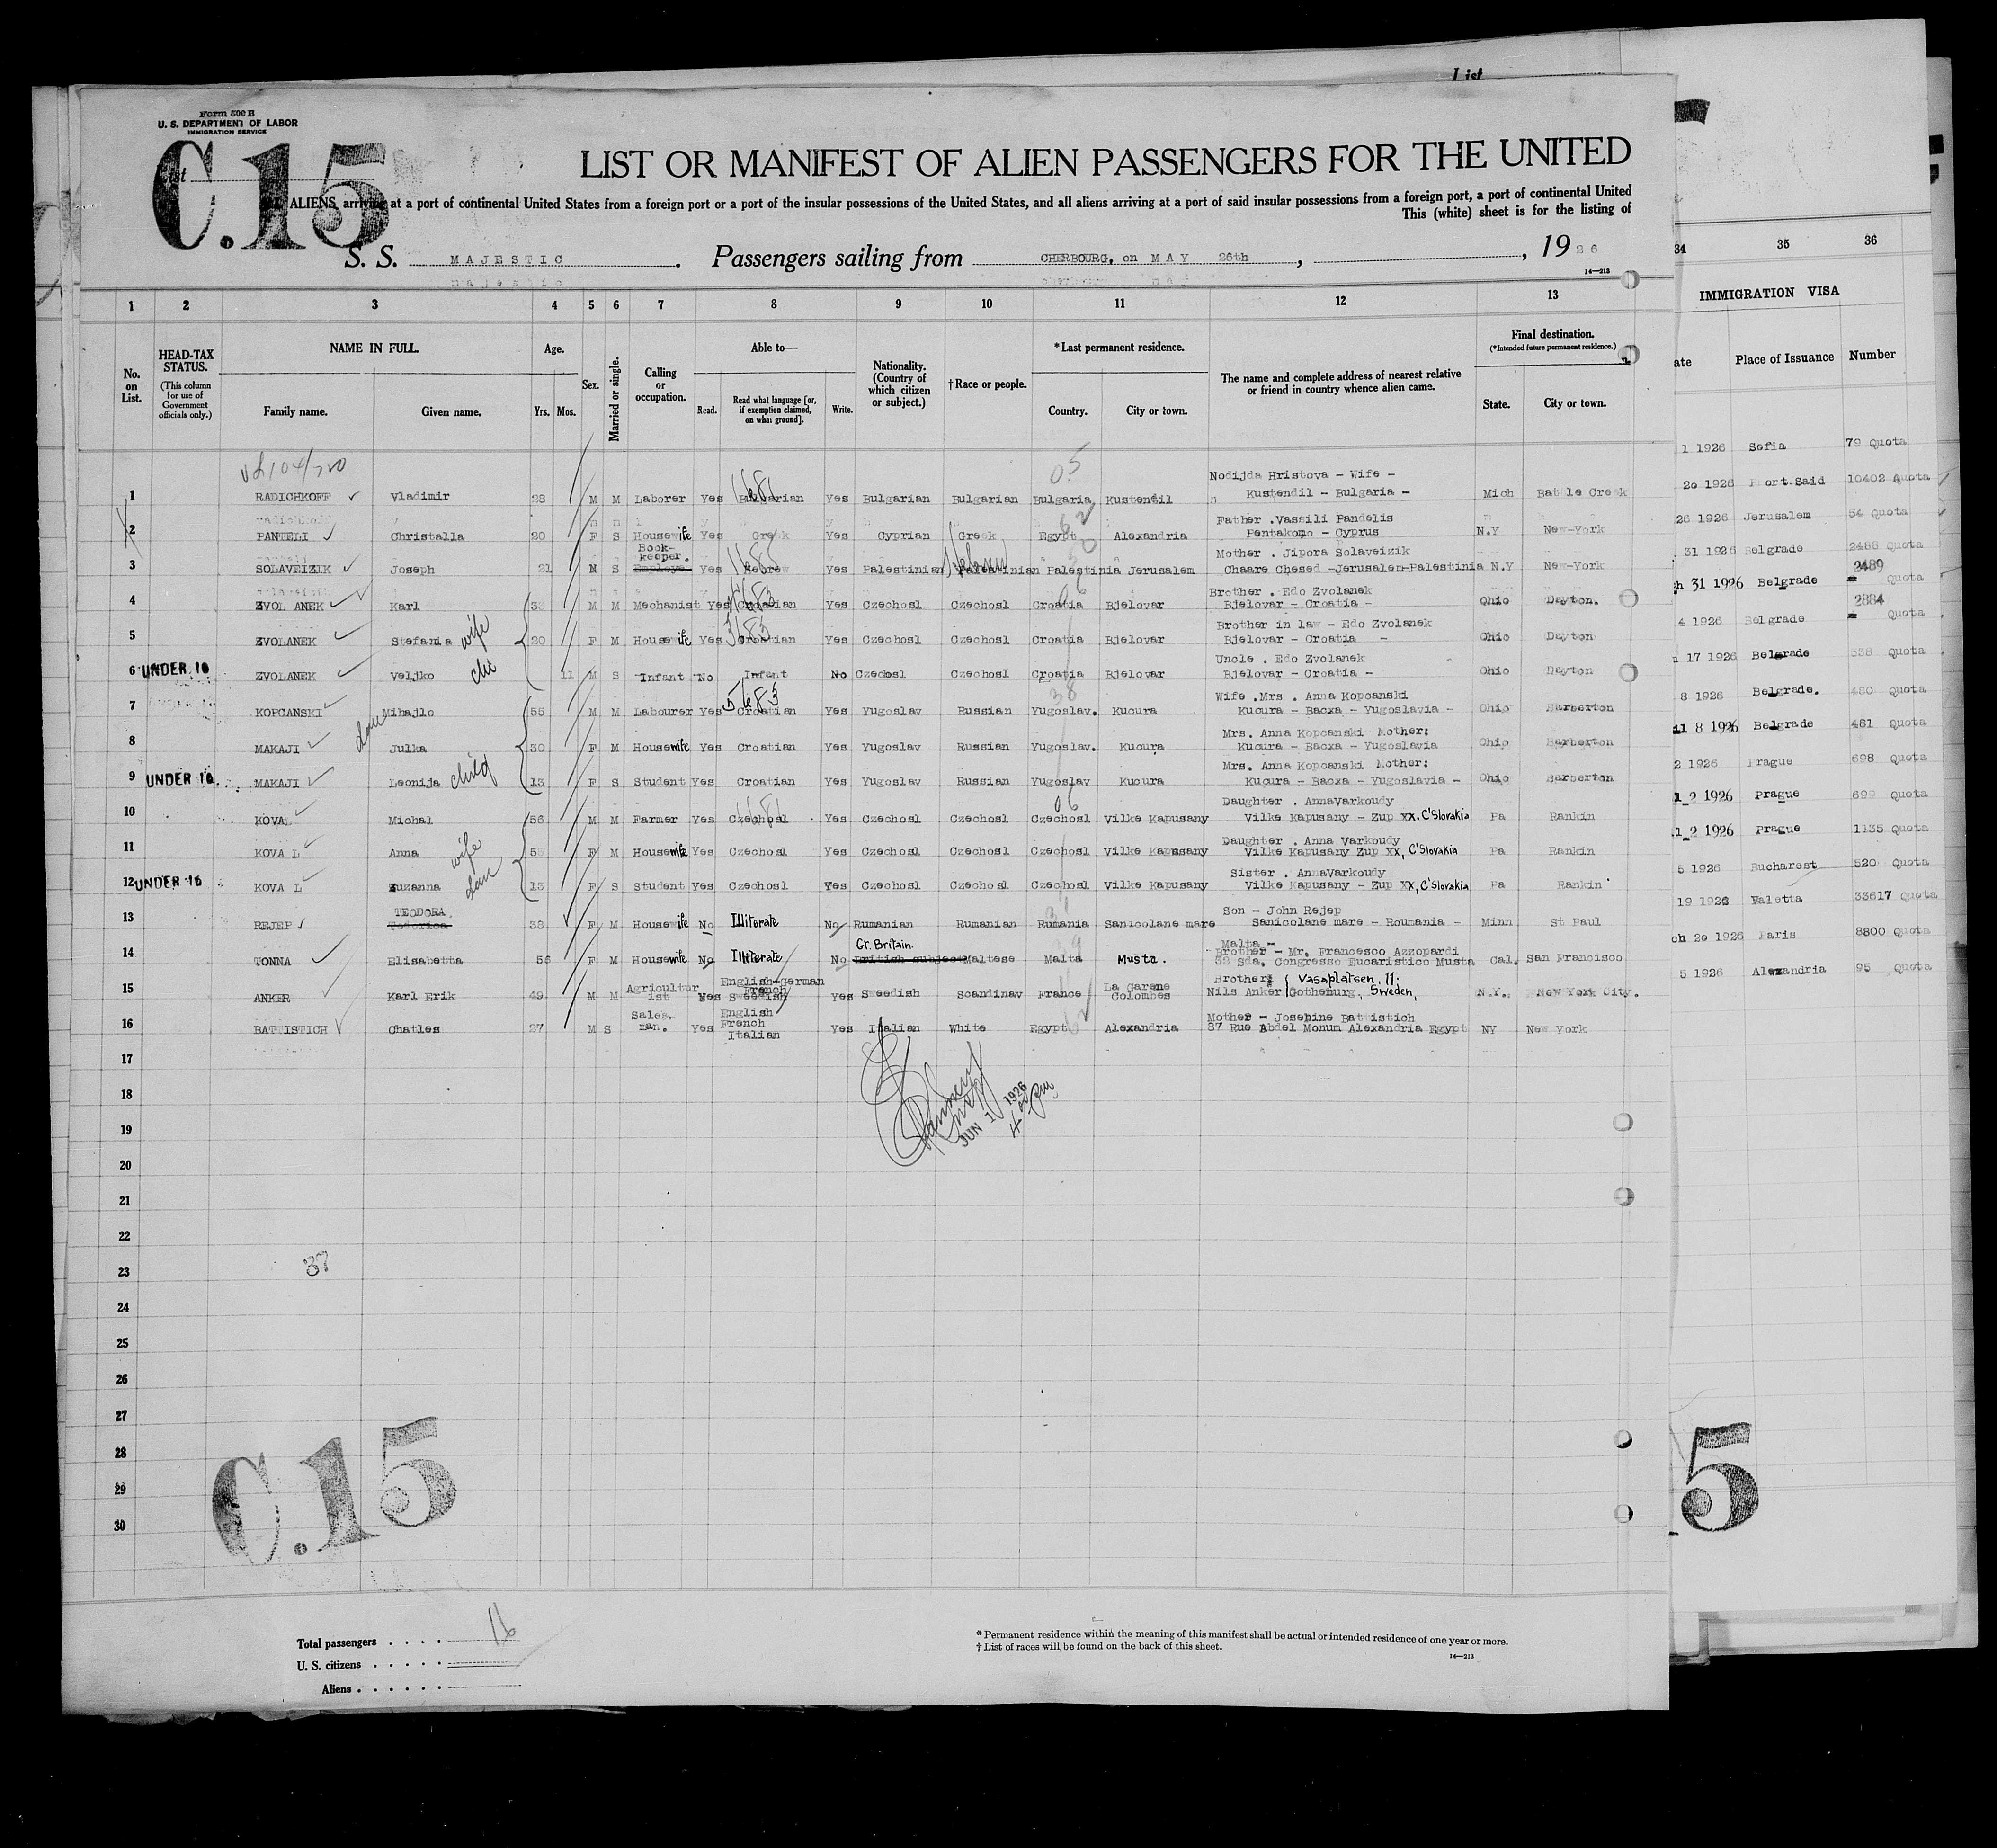 List
Form 500 B
U. S. DEPARTMENT OF LABOR
IMMIGRATION SERVICE
C.15
LIST OR MANIFEST OF ALIEN PASSENGERS FOR THE UNITED
ALIENS arriving at a port of continental United States from a foreign port or a port of the insular possessions of the United States, and all aliens arriving at a port of said insular possessions from a foreign port, a port of continental United
This (white) sheet is for the listing of
S. S. MAJESTIC. Passengers sailing from CHERBOURG, on MAY 26th, , 1926
14—213
1 2 3 4 5 6 7 8 9 10 11 12 13
34 35 36
IMMIGRATION VISA
No. on List.
HEAD-TAX STATUS. (This column for use of Government officials only.)
NAME IN FULL.
Family name. Given name.
Age. Yrs. Mos.
Sex.
Married or single.
Calling or occupation.
Able to—
Read. Read what language [or, if exemption claimed, on what ground]. Write.
Nationality. (Country of which citizen or subject.)
†Race or people.
*Last permanent residence.
Country. City or town.
The name and complete address of nearest relative or friend in country whence alien came.
Final destination. (*Intended future permanent residence.)
State. City or town.
ate Place of Issuance Number
05
Nodijda Hristova - Wife -
1 RADICHKOFF Vladimir 28 M M Laborer Yes Bulgarian Yes Bulgarian Bulgarian Bulgaria Kustendil Kustendil - Bulgaria - Mich Battle Creek
1 1926 Sofia 79 Quota
Father .Vassili Pandelis
2 PANTELI Christalla 20 F S Housewife Yes Greek Yes Cyprian Greek Egypt Alexandria Pentakomo - Cyprus N.Y New-York
20 1926 Port Said 10402 Quota
Book-keeper.
Mother . Jipora Solaveizik
3 SOLAVEIZIK Joseph 21 M S Employe Yes Hebrew Yes Palestinian Palestinian Hebrew Palestinia Jerusalem Chaare Chesed -Jerusalem-Palestinia N.Y New-York
26 1926 Jerusalem 54 Quota
Brother . Edo Zvolanek
4 ZVOLANEK Karl M M Mechanist Yes Croatian Yes Czechosl Czechosl Croatia Bjelovar Bjelovar - Croatia - Ohio Dayton.
31 1926 Belgrade 2488 Quota
Brother in law - Edo Zvolanek
5 ZVOLANEK Stefania wife 20 F M Housewife Yes Croatian Yes Czechosl Czechosl Croatia Bjelovar Bjelovar - Croatia - Ohio Dayton
h 31 1926 Belgrade 2489 Quota
Uncle . Edo Zvolanek
6 UNDER 16 ZVOLANEK Veljko 11 M S Infant No Infant No Czechosl Czechosl Croatia Bjelovar Bjelovar - Croatia - Ohio Dayton
4 1926 Belgrade 2884 Quota
Wife .Mrs . Anna Kopcanski
7 KOPCANSKI Mihajlo 55 M M Labourer Yes Croatian Yes Yugoslav Russian Yugoslav. Kucura Kucura - Bacxa - Yugoslavia - Ohio Barberton
17 1926 Belgrade 538 Quota
Mrs. Anna Kopcanski Mother:
8 MAKAJI Julka 30 F M Housewife Yes Croatian Yes Yugoslav Russian Yugoslav. Kucura Kucura - Bacxa - Yugoslavia Ohio Barberton
8 1926 Belgrade. 480 Quota
Mrs. Anna Kopcanski Mother:
9 UNDER 16 MAKAJI Leonija child 13 F S Student Yes Croatian Yes Yugoslav Russian Yugoslav Kucura Kucura - Bacxa - Yugoslavia - Ohio Barberton
il 8 1926 Belgrade 481 Quota
Daughter . AnnaVarkoudy
10 KOVAL Michal 56 M M Farmer Yes Czechosl Yes Czechosl Czechosl Czechosl Vilke Kapusany Vilke Kapusany - Zup XX. C'Slovakia Pa Rankin
2 1926 Prague 698 Quota
Daughter . Anna Varkoudy
11 KOVAL Anna wife F M Housewife Yes Czechosl Yes Czechosl Czechosl Czechosl Vilke Kapusany Vilke Kapusany Zup XX, C'Slovakia Pa Rankin
2 1926 Prague 699 Quota
Sister . AnnaVarkoudy
12 UNDER 16 KOVAL Zuzanna dau 13 F S Student Yes Czechosl Yes Czechosl Czechosl Czechosl Vilke Kapusany Vilke Kapusany - Zup XX, C'Slovakia Pa Rankin
2 1926 Prague 1135 Quota
TEODORA
Son - John Rejep
13 REJEP 38 F M Housewife No Illiterate No Rumanian Rumanian Rumania Sanicolane mare Sanicolane mare - Roumania - Minn St Paul
5 1926 Bucharest 520 Quota
Gt. Britain.
Malta -
Brother - Mr. Francesco Azzopardi
14 TONNA Elisabetta F M Housewife No Illiterate No British subject Maltese Malta Musta. Sda. Congresso Eucaristico Musta Cal. San Francisco
19 1926 Valetta 33617 Quota
Agriculturist English-German French
La Garene Colombes
Brother: Vasaplatsen, 11;
15 ANKER Karl Erik 49 M M Yes Swedish Yes Swedish Scandinav France Nils Anker Gothenurg, Sweden, N.Y., New York City.
ch 20 1926 Paris 8800 Quota
Salesman. English French Italian
Mother - Josephine Battistich
16 BATTISTICH Chatles 27 M S Yes Yes Italian White Egypt Alexandria 37 Rue Abdel Monum Alexandria Egypt NY New York
5 1926 Alexandria 95 Quota
17
18
JUN 1 1926
19
20
21
22
23
37
24
25
26
27
28
29
30
C.15
5
Total passengers . . . . 16
U. S. citizens . . . . .
Aliens . . . . . .
* Permanent residence within the meaning of this manifest shall be actual or intended residence of one year or more.
† List of races will be found on the back of this sheet.
14—213